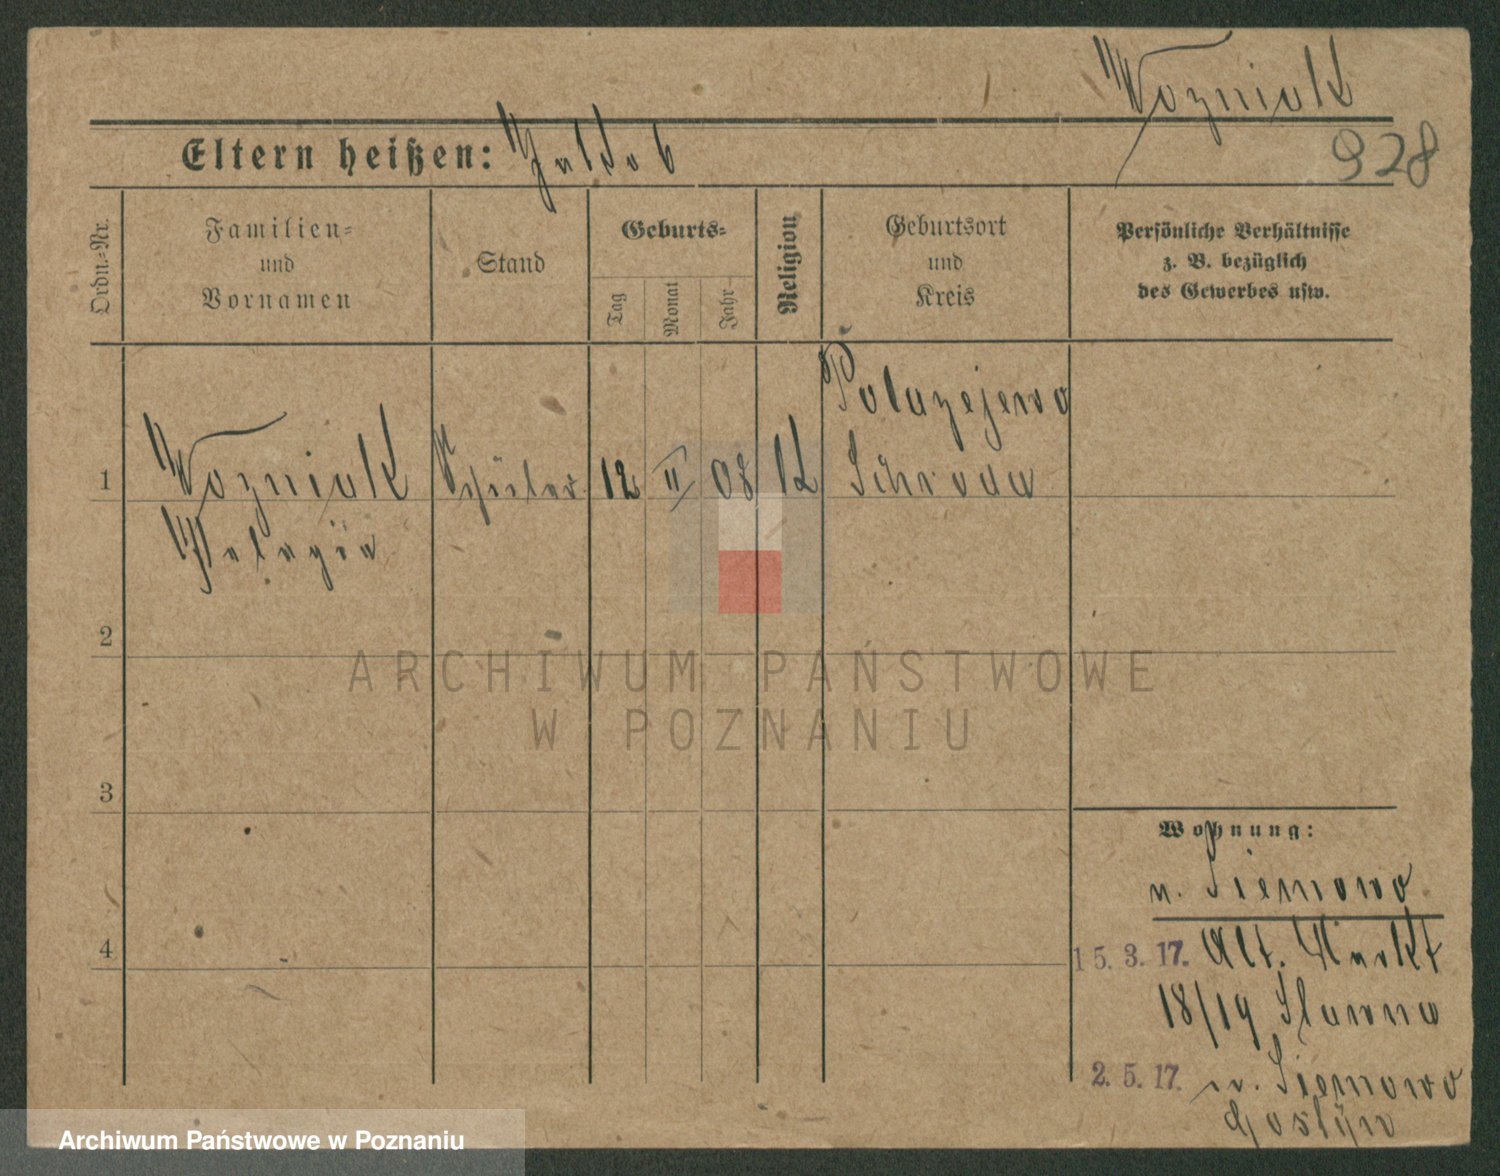 Wozniak
928
Eltern heißen: Jakob
Ordn.-Nr.
Familien-
und
Vornamen
Stand
Geburts-
Tag
Monat
Jahr
Religion
Geburtsort
und
Kreis
Persönliche Verhältnisse
z. B. bezüglich
des Gewerbes usw.
1
Wozniak
Pelagia
Schüler
12
II
08
K
Polazejewo
Schroda
2
3
4
Wohnung:
n. Siemowo
15. 3. 17. Alt. Markt
18/19 Slawna
2. 5. 17. n. Siemowo
Gostyn
ARCHIWUM PAŃSTWOWE
W POZNANIU
Archiwum Państwowe w Poznaniu